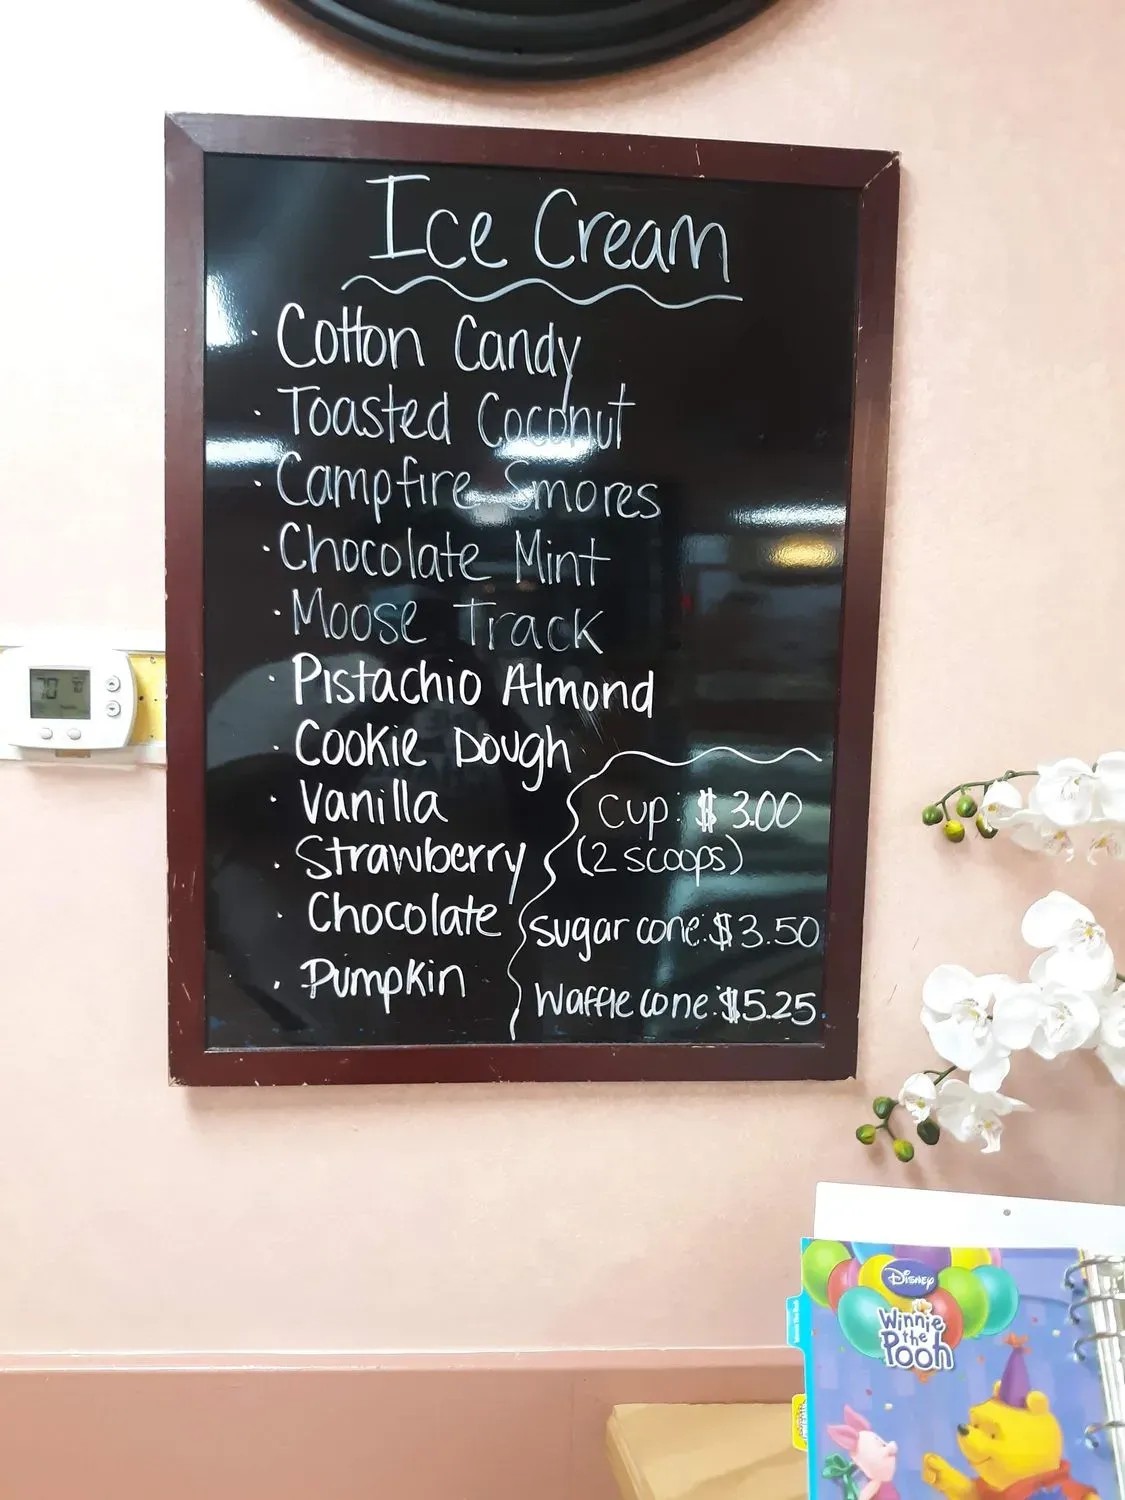 Ice Cream
· Cotton Candy
· Toasted Coconut
· Campfire Smores
· Chocolate Mint
· Moose Track
· Pistachio Almond
· Cookie Dough
· Vanilla
· Strawberry
· Chocolate
· Pumpkin
Cup: $3.00
(2 scoops)
Sugar cone: $3.50
Waffle cone: $5.25
70
Disney
Winnie
the
Pooh